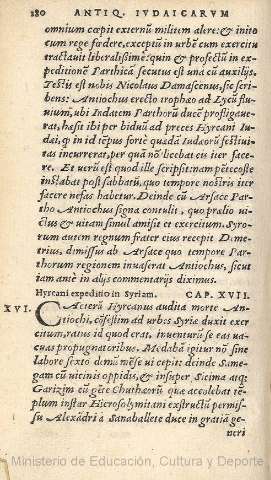 180 ANTIQ. IVDAICARVM
omnium cœpit externũ militem alere: & inito
cum rege fœdere, exceptũ in vrbẽ cum exercitu
tractauit liberalissime: quin & profectũ in ex-
peditionẽ Parthicã secutus est unà cũ auxilijs.
Testis est nobis Nicolaus Damascenus, sic scri-
bens: Antiochus erecto trophæo ad Lycũ flu-
uium, ubi Indatem Parthorũ ducẽ profligaue-
rat, hæsit ibi per biduũ ad preces Hyrcani Iu-
dæi, ꝙ in id tẽpus fortè quædã Iudæorũ festiui-
tas incurrerat, per quã nõ licebat eis iter face
re. Et uerũ est quod ille scripsit: nam pẽtecoste
instabat post sabbatũ, quo tempore nostris iter
facere nefas habetur. Deinde cũ Arsace Par-
tho Antiochus signa contulit, quo prælio vi-
ctus & uitam simul amisit et exercitum. Syro-
rum autem regnum frater eius recepit Deme-
trius, dimissus ab Arsace quo tempore Par-
thorum regionem inuaserat Antiochus, sicut
iam antè in alijs commentarijs diximus.
Hyrcani expeditio in Syriam. CAP. XVII.
XVI. CAEterũ Hyrcanus audita morte An-
tiochi, cõfestim ad urbes Syriæ duxit exer
citum, ratus id quod erat, inuenturũ se eas ua-
cuas propugnatoribus. Medabã igitur nõ sine
labore sexto demũ mẽse ui cepit: deinde Samε-
gam cũ uicinis oppidis, & insuper Sicima atq;
Garizim cũ gẽte Chuthæorũ quæ accolebat tẽ
plum instar Hierosolymitani exstructũ permis-
su Alexãdri à Sanaballete duce in gratiã ge-
neri
Ministerio de Educación, Cultura y Deporte